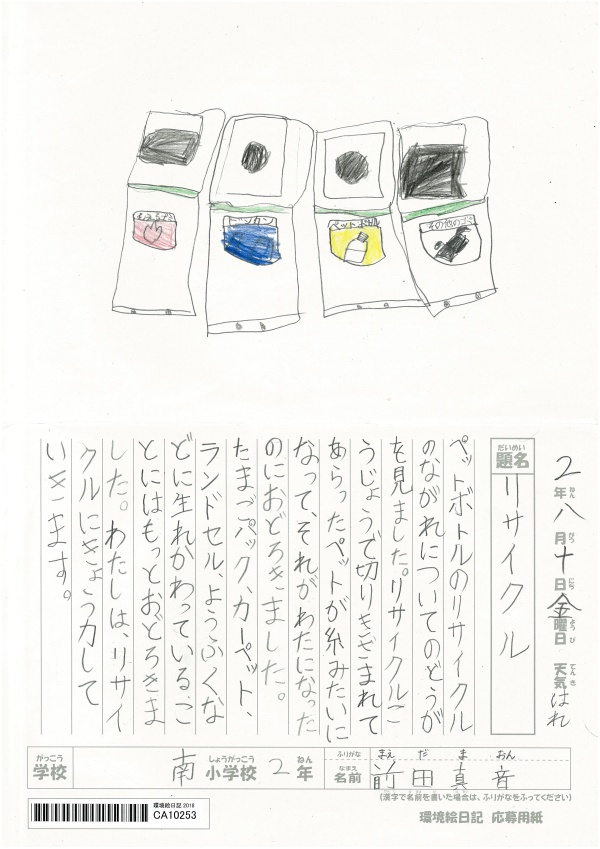 もえるゴミ
ビンカン
ペットボトル
その他のゴミ
2年八月十日金曜日 天気はれ
ねん がつ にち ようび てんき
だいめい
題名 リサイクル
ペットボトルのリサイクル
のながれについてのどうが
を見ました。リサイクルこ
うじょうで切りきざまれて
あらったペットが糸みたいに
なって、それがわたになった
のにおどろきました。
たまごパック、カーペット、
ランドセル、ようふくな
どに生れかわっているこ
とにはもっとおどろきま
した。わたしは、リサイ
クルにきょう力して
いきます。
がっこう しょうがっこう ねん
学校 南小学校 2年
ふりがな まえ だ ま おん
なまえ
名前 前田真音
(漢字で名前を書いた場合は、ふりがなをふってください)
環境絵日記 2018
CA10253
環境絵日記 応募用紙